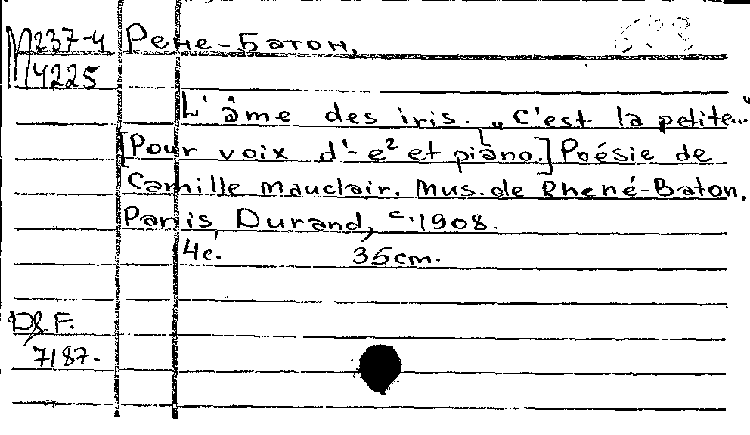 М237-4 Рене-Батон,
М4225
L'âme des iris. „C'est la petite..."
[Pour voix d'-e² et piano.] Poésie de
Camille Mauclair. Mus. de Rhené-Baton.
Paris, Durand, c. 1908.
4c. 35cm.
D&F.
7187.